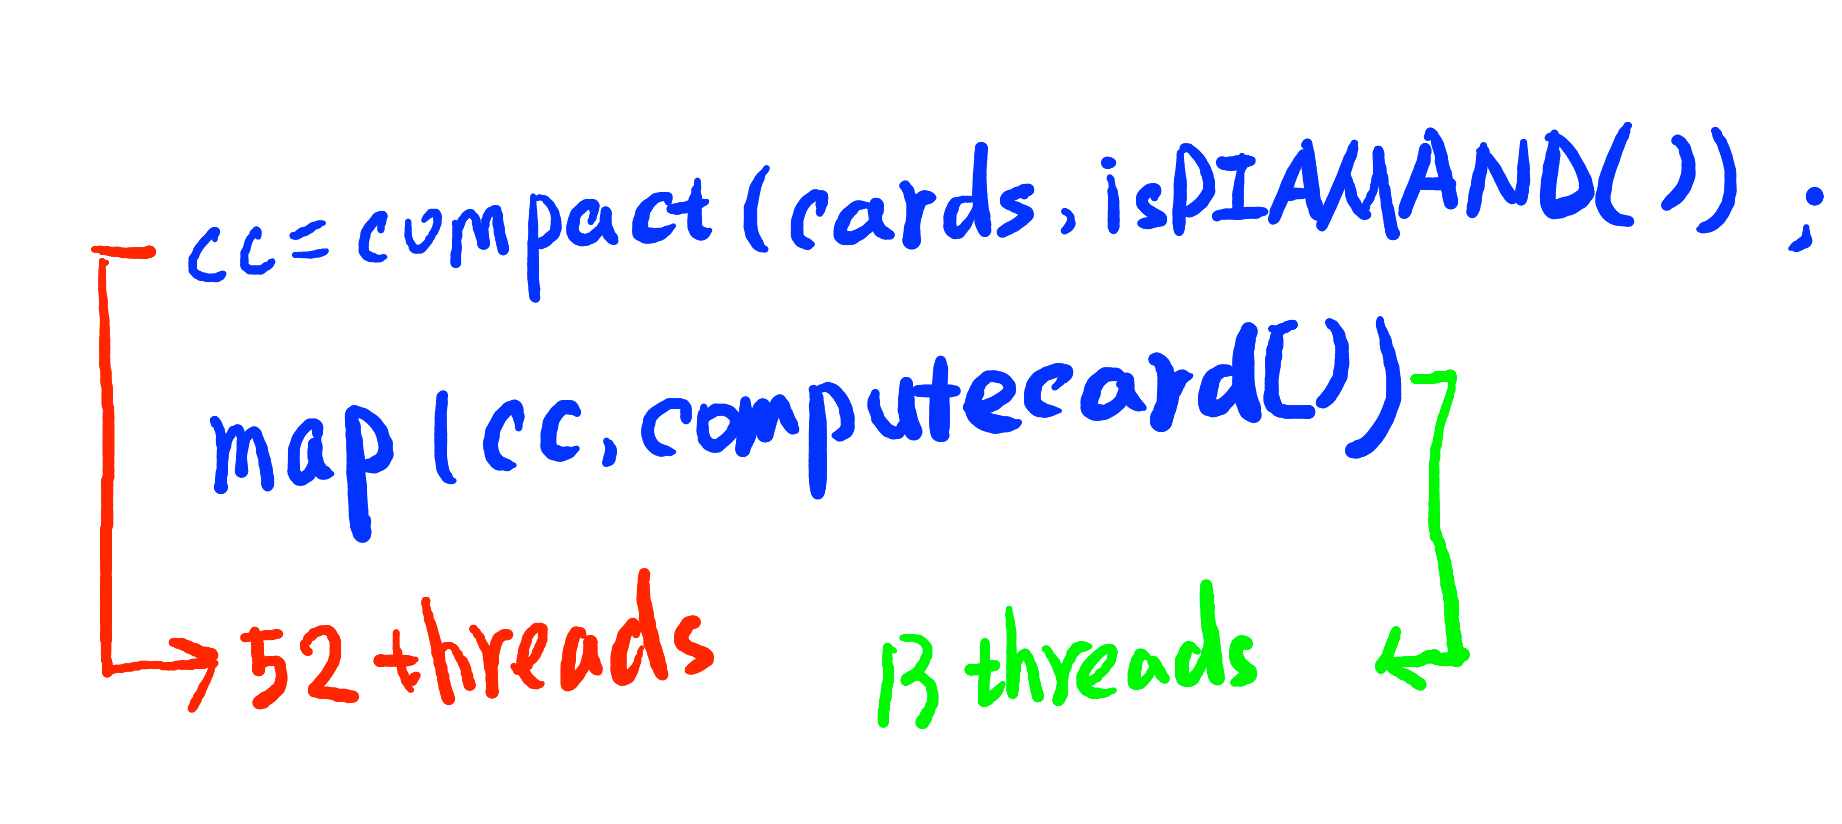 cc=compact(cards, isDIAMAND());
map(cc, computecard())
52 threads
13 threads